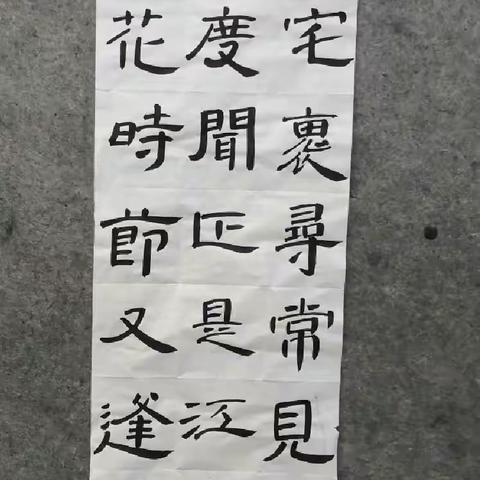 宅裏尋常見
度聞正是江
花時節又逢